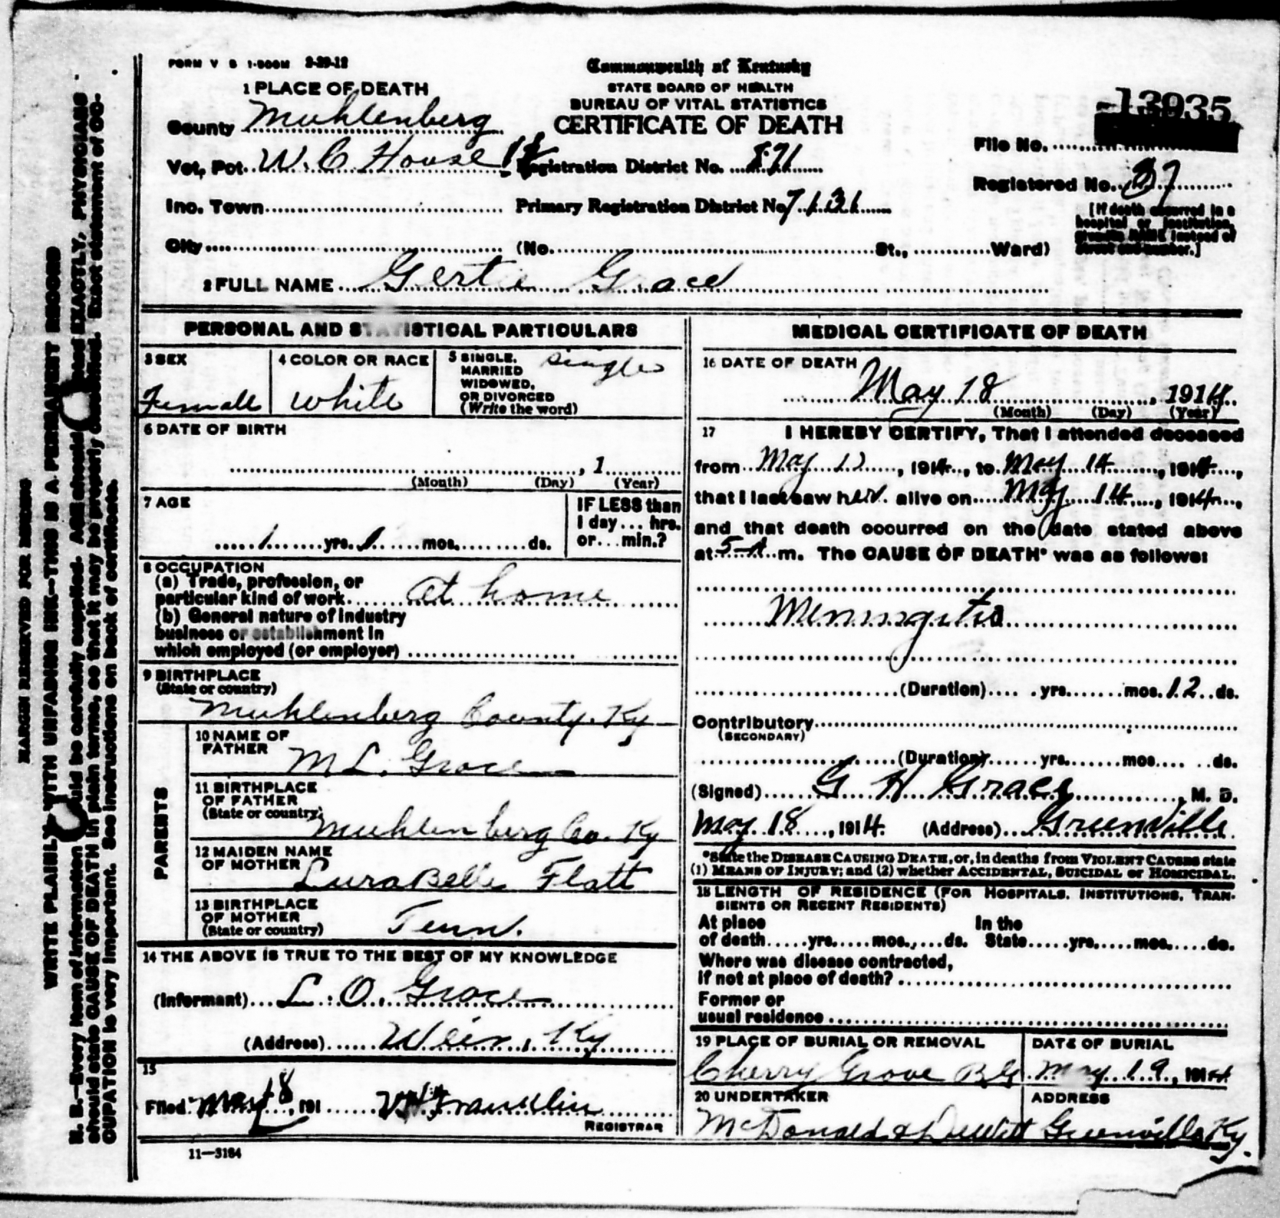 FORM V S 1-500M 2-29-12
Commonwealth of Kentucky
STATE BOARD OF HEALTH
BUREAU OF VITAL STATISTICS
CERTIFICATE OF DEATH
1 PLACE OF DEATH
County Muhlenberg
Vot, Pct. W. C. House Registration District No. 871
Inc. Town Primary Registration District No 7131
City (No. St., Ward)
13935
File No.
Registered No. 37
[If death occurred in a
hospital or institution,
give its NAME instead of
street and number.]
2 FULL NAME Gertie Grace
PERSONAL AND STATISTICAL PARTICULARS
3 SEX
Female
4 COLOR OR RACE
white
5 SINGLE,
MARRIED
WIDOWED,
OR DIVORCED
(Write the word)
single
6 DATE OF BIRTH
, 1
(Month) (Day) (Year)
7 AGE
1 yrs. 1 mos. ds.
IF LESS than
1 day ... hrs.
or ... min.?
8 OCCUPATION
(a) Trade, profession, or
particular kind of work at home
(b) General nature of industry
business or establishment in
which employed (or employer)
9 BIRTHPLACE
(State or country)
Muhlenberg County. Ky
PARENTS
10 NAME OF
FATHER
M L. Grace
11 BIRTHPLACE
OF FATHER
(State or country)
Muhlenberg Co. Ky
12 MAIDEN NAME
OF MOTHER
LuraBelle Flatt
13 BIRTHPLACE
OF MOTHER
(State or country)
Tenn.
14 THE ABOVE IS TRUE TO THE BEST OF MY KNOWLEDGE
(Informant) L. O. Grace
(Address) Weir, Ky
15
Filed May 18, 191 Franklin
REGISTRAR
11—3184
MEDICAL CERTIFICATE OF DEATH
16 DATE OF DEATH
May 18, 1914
(Month) (Day) (Year)
17 I HEREBY CERTIFY, That I attended deceased
from May , 1914, to May 14, 1914,
that I last saw her alive on May 14, 1914,
and that death occurred on the date stated above
at 5 A m. The CAUSE OF DEATH* was as follows:
Meningitis
(Duration) yrs. mos. 12 ds.
Contributory
(SECONDARY)
(Duration) yrs. mos. ds.
(Signed) G H Grace M. D.
May 18, 1914. (Address) Greenville
*State the DISEASE CAUSING DEATH, or, in deaths from VIOLENT CAUSES state
(1) MEANS OF INJURY; and (2) whether ACCIDENTAL, SUICIDAL or HOMICIDAL.
18 LENGTH OF RESIDENCE (FOR HOSPITALS, INSTITUTIONS, TRAN-
SIENTS OR RECENT RESIDENTS)
At place In the
of death yrs. mos. ds. State yrs. mos. ds.
Where was disease contracted,
if not at place of death?
Former or
usual residence
19 PLACE OF BURIAL OR REMOVAL
Cherry Grove B G
DATE OF BURIAL
May 19, 1914
20 UNDERTAKER
McDonald & DeWitt
ADDRESS
Greenville Ky.
MARGIN RESERVED FOR BINDING
WRITE PLAINLY WITH UNFADING INK—THIS IS A PERMANENT RECORD
N. B.—Every item of information should be carefully supplied. AGE should be stated EXACTLY. PHYSICIANS
should state CAUSE OF DEATH in plain terms, so that it may be properly classified. Exact statement of OC-
CUPATION is very important. See instructions on back of certificate.